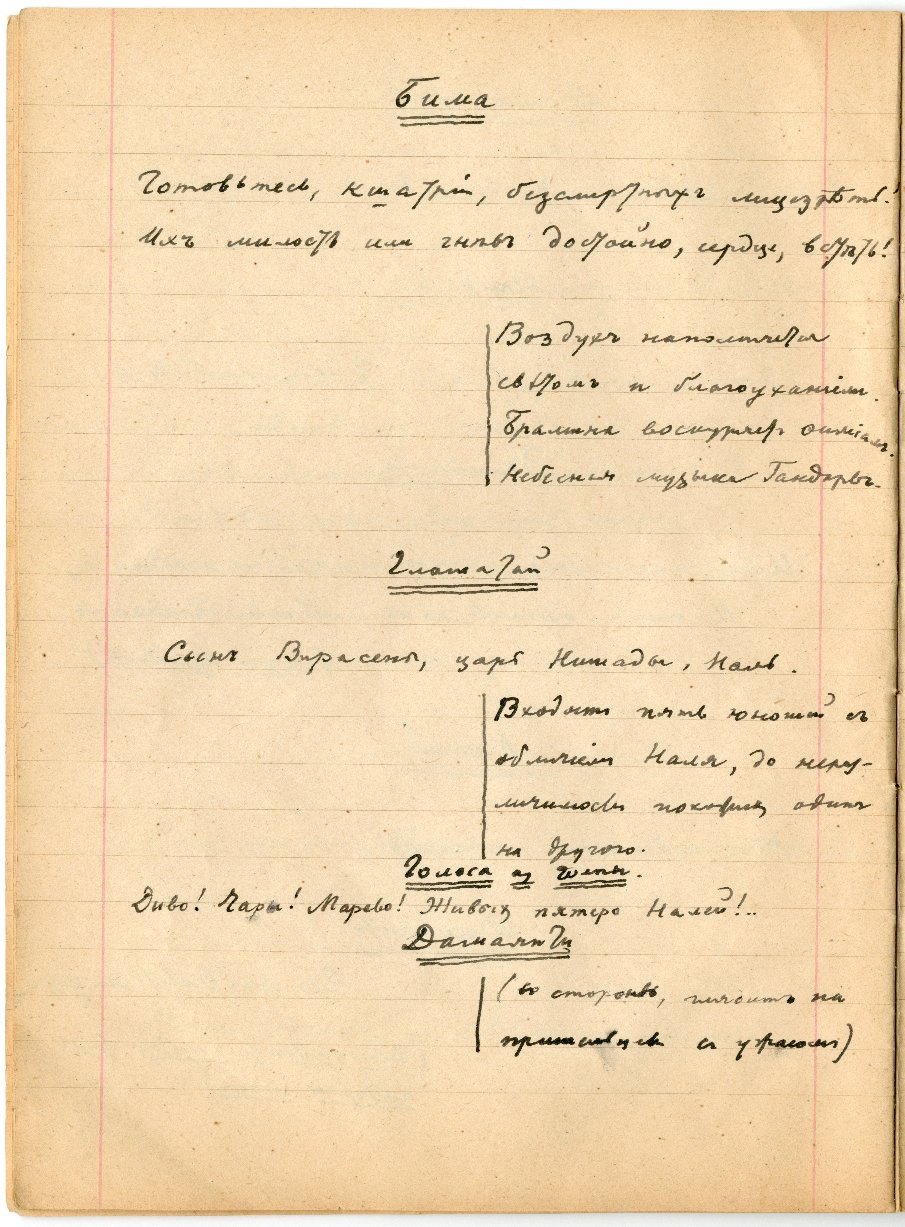 Бима
Готовьтесь, кшатріи, безсмертныхъ лицезрѣть!
Ихъ милость или гнѣвъ достойно, сердце, встрѣть!
Воздухъ наполняется
свѣтомъ и благоуханіемъ.
Брамина воскуряетъ
Небесная музыка Гандарвъ.
Глашатай
Сынъ Вирасены, царь Нишады, Наль.
Входятъ пять юношей съ
обличіемъ Наля, до нераз-
личимости похожихъ одинъ
на другого.
Голоса из толпы.
Диво! Чары! Марево! Живыхъ пятеро Налей!..
Дамаянти
(въ сторонѣ, глядитъ на
пришельцевъ съ ужасомъ)